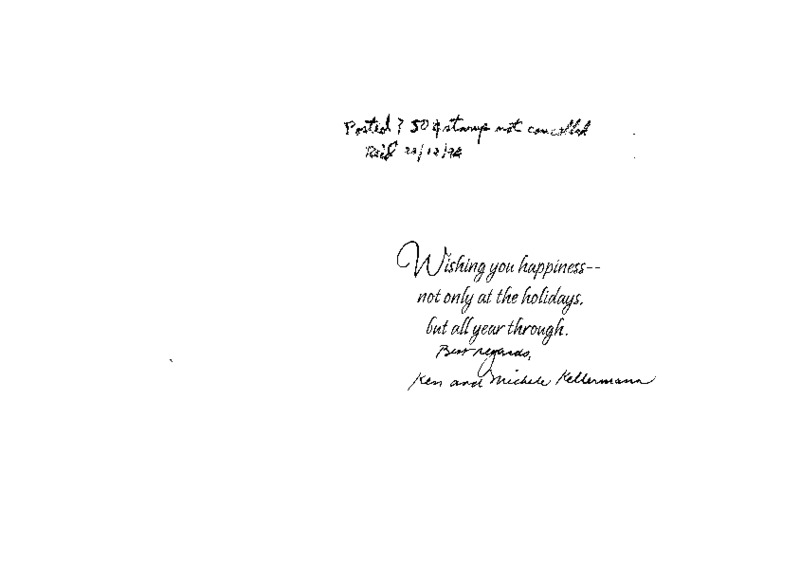 Posted? 50¢ stamp not cancelled
Rec'd 22/12/94
Wishing you happiness--
not only at the holidays,
but all year through.
Best regards,
Ken and Michele Kellermann